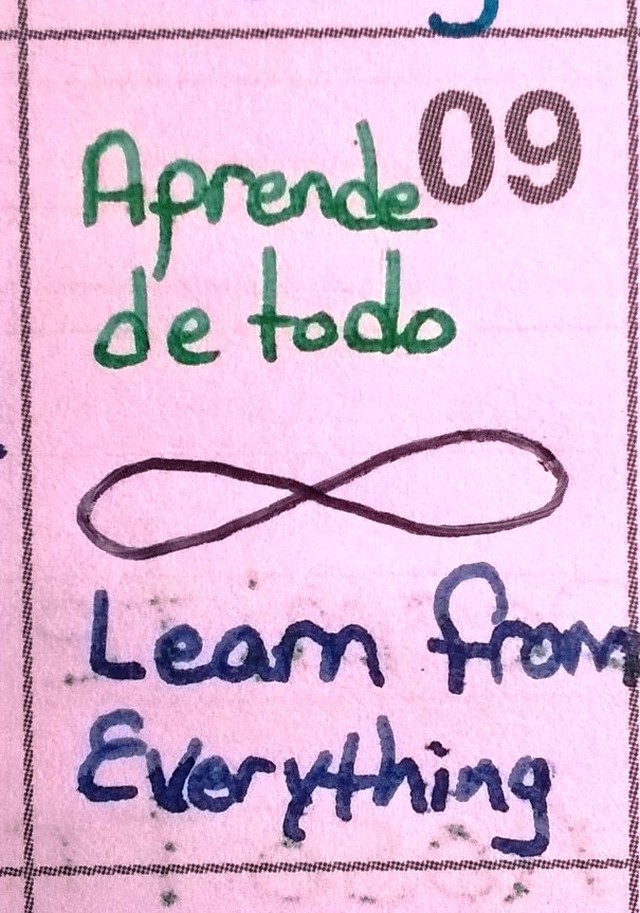 09
Aprende
de todo
Learn from
Everything